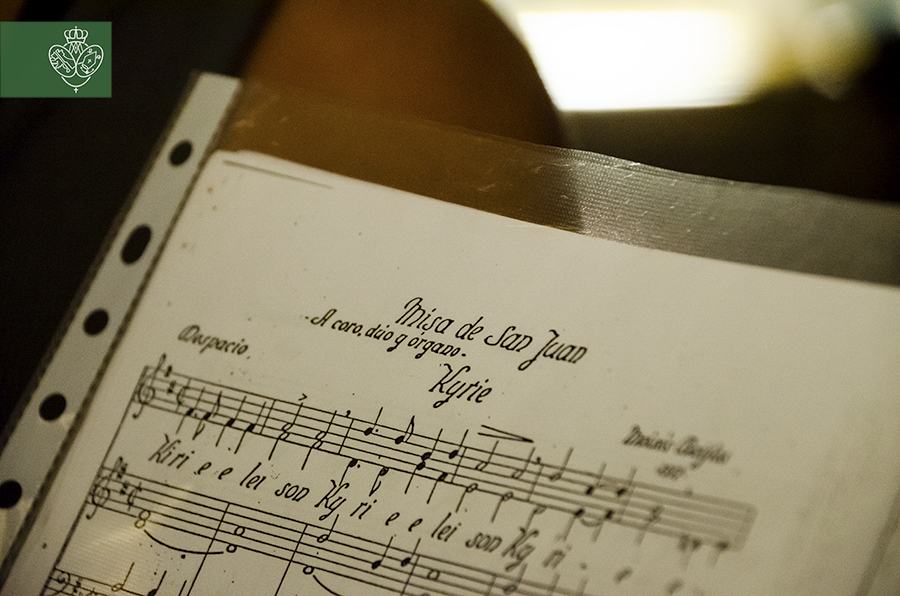 Misa de San Juan
- A coro, dúo y órgano -
Kyrie
Despacio
Kiri e e lei son Ky ri e e lei son Ky ri